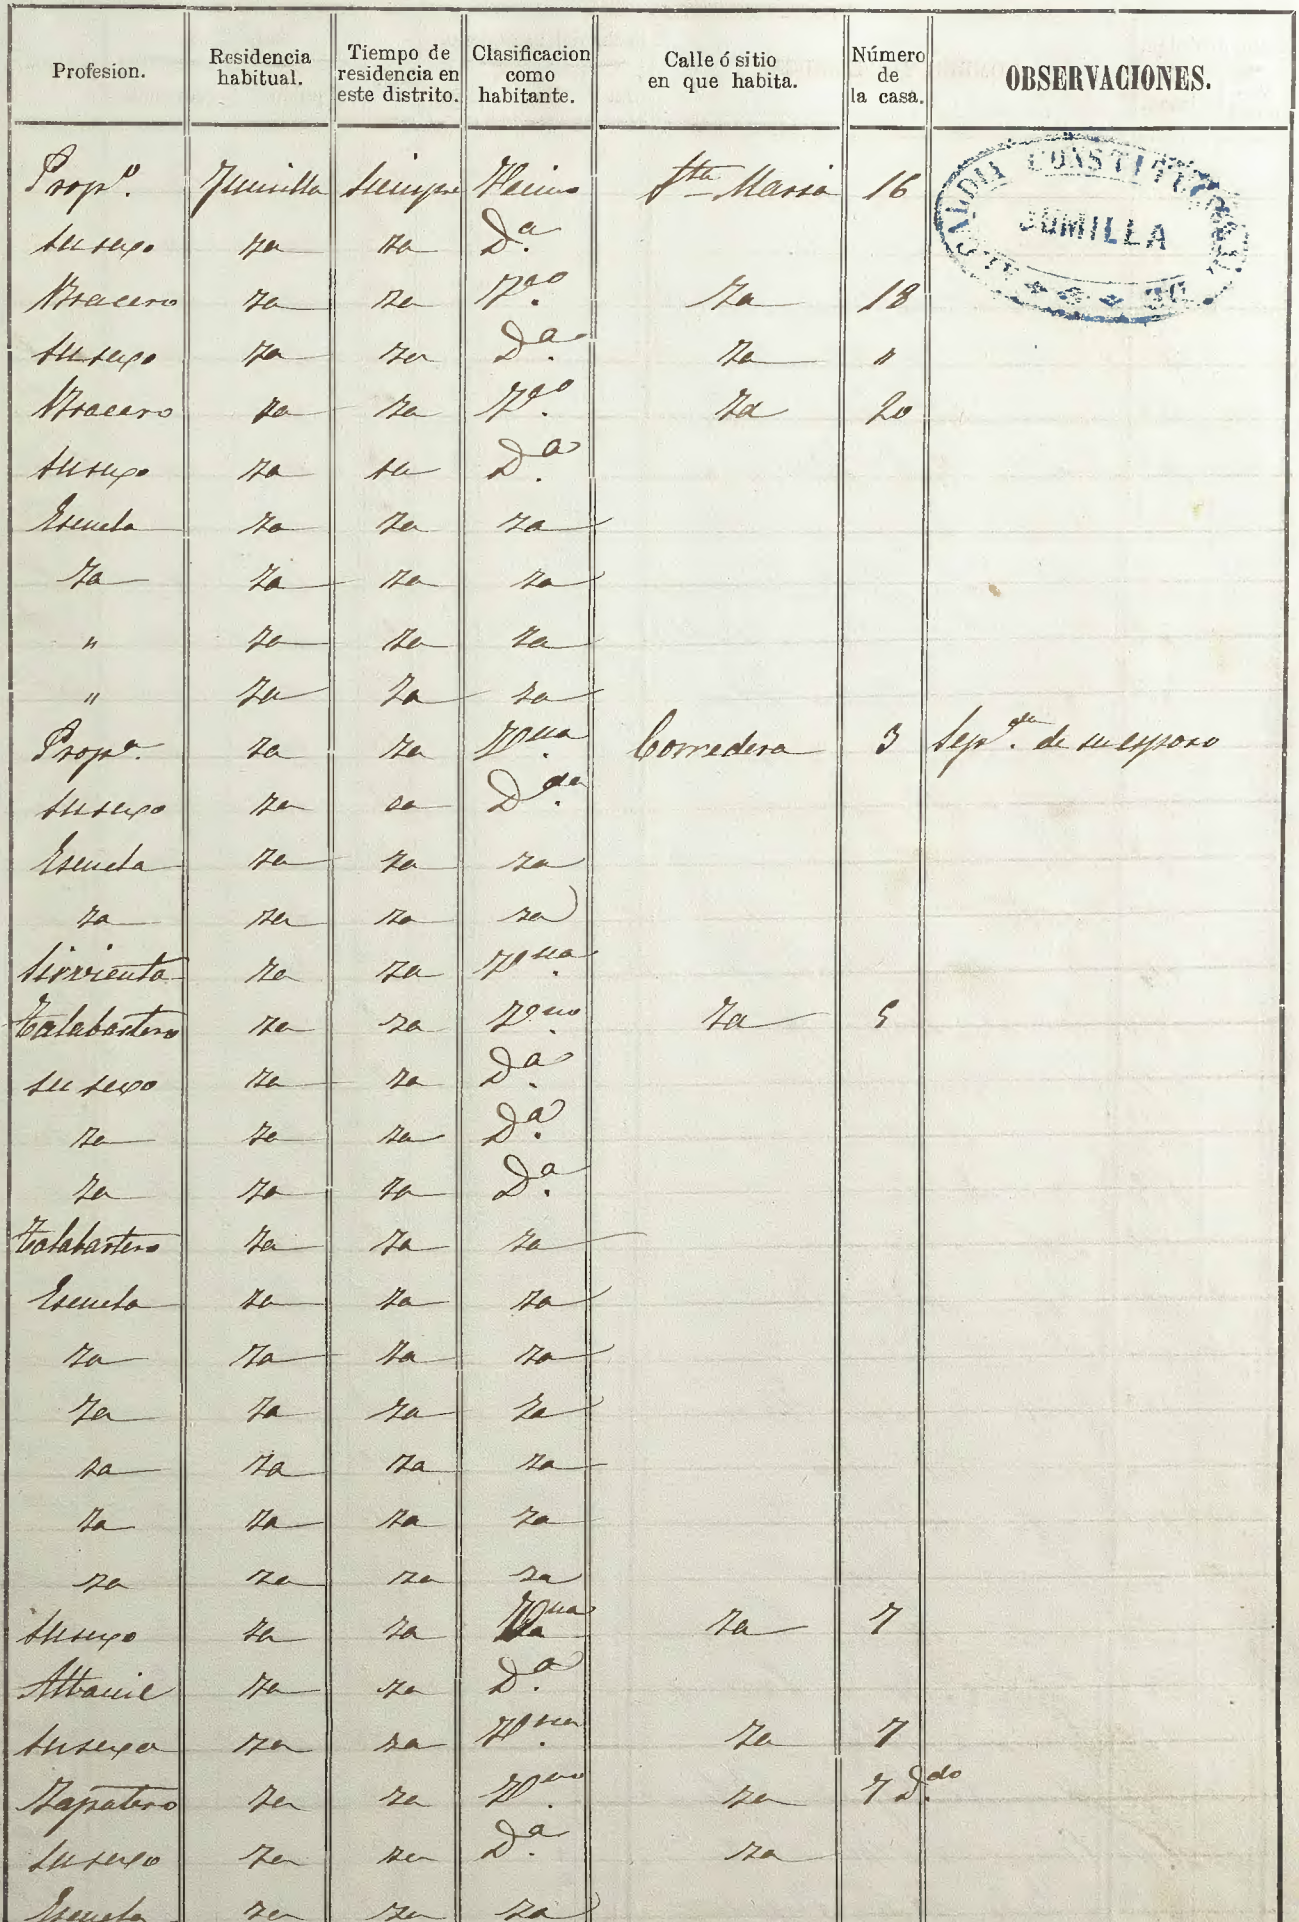 Profesion. Residencia habitual. Tiempo de residencia en este distrito. Clasificacion como habitante. Calle ó sitio en que habita. Número de la casa. OBSERVACIONES.
ALCALDIA CONSTITUCIONAL DE JUMILLA
Propº. Jumilla siempre Vecino Sta Maria 16
su sexo ya ya Dª.
Bracero ya ya Vno. ya 18
su sexo ya ya Dª. ya "
Bracero ya ya Vno. ya 20
su sexo ya ya Dª.
Escuela ya ya ya
ya ya ya ya
" ya ya ya
" ya ya ya
Propª. ya ya Vna. Corredera 3 Sepda. de su esposo
su sexo ya ya Dda.
Escuela ya ya ya
ya ya ya ya
Sirvienta ya ya Vna.
Talabartero ya ya Vno. ya 5
su sexo ya ya Dª.
ya ya ya Dª.
ya ya ya Dª.
Talabartero ya ya ya
Escuela ya ya ya
ya ya ya ya
ya ya ya ya
ya ya ya ya
ya ya ya ya
ya ya ya ya
su sexo ya ya Vna ya 7
Albañil ya ya Dª.
su sexo ya ya Vna. ya 7
Zapatero ya ya Vno. ya 7 Ddo.
su sexo ya ya Dª. ya
Escuela ya ya ya